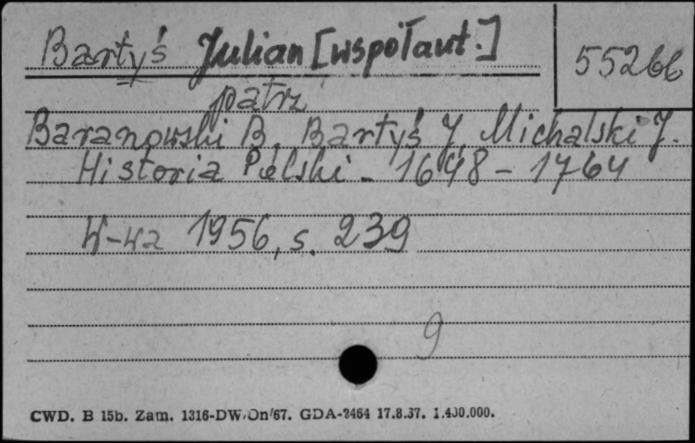 Bartyś Julian [współaut.]
55266
patrz
Baranowski B., Bartyś J., Michalski J.
Historia Polski - 1648 - 1764
W-wa 1956, s. 239
9
CWD. B 15b. Zam. 1316-DW/Dn/67. GDA-2464 17.8.67. 1.400.000.